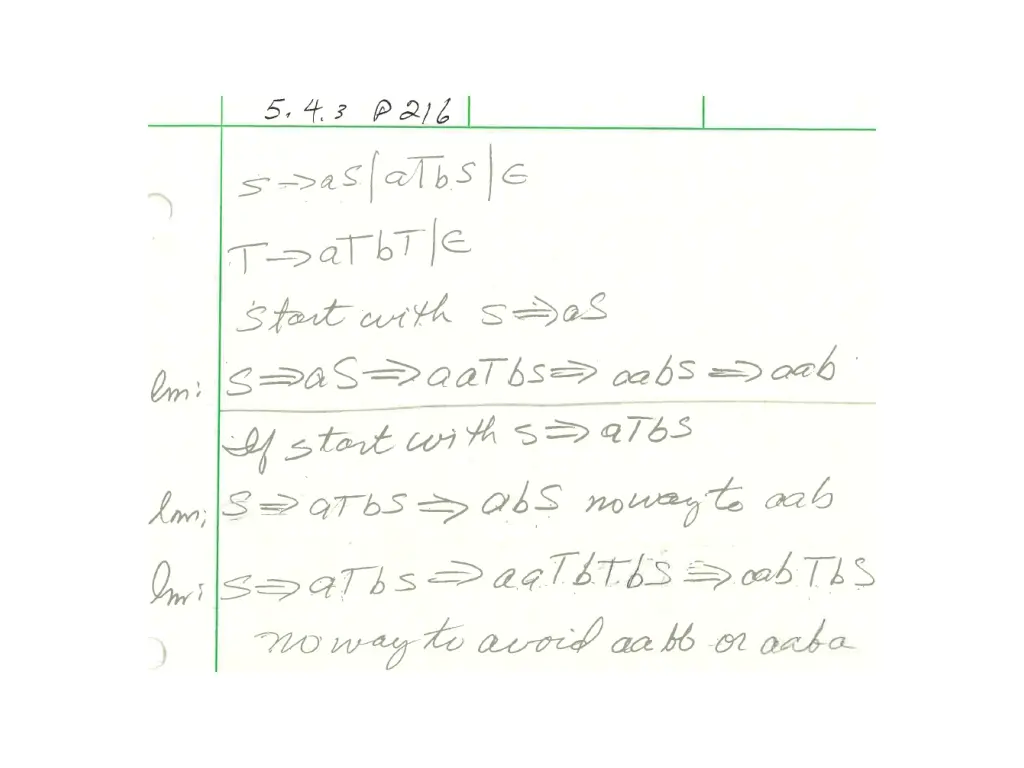 5.4.3 P 216
S→aS|aTbS|ϵ
T→aTbT|ϵ
Start with S⇒aS
lm: S⇒aS⇒aaTbS⇒aabS⇒aab
If start with S⇒aTbS
lm; S⇒aTbS⇒abS no way to aab
lm: S⇒aTbS⇒aaTbTbS⇒aabTbS
no way to avoid aabb or aaba